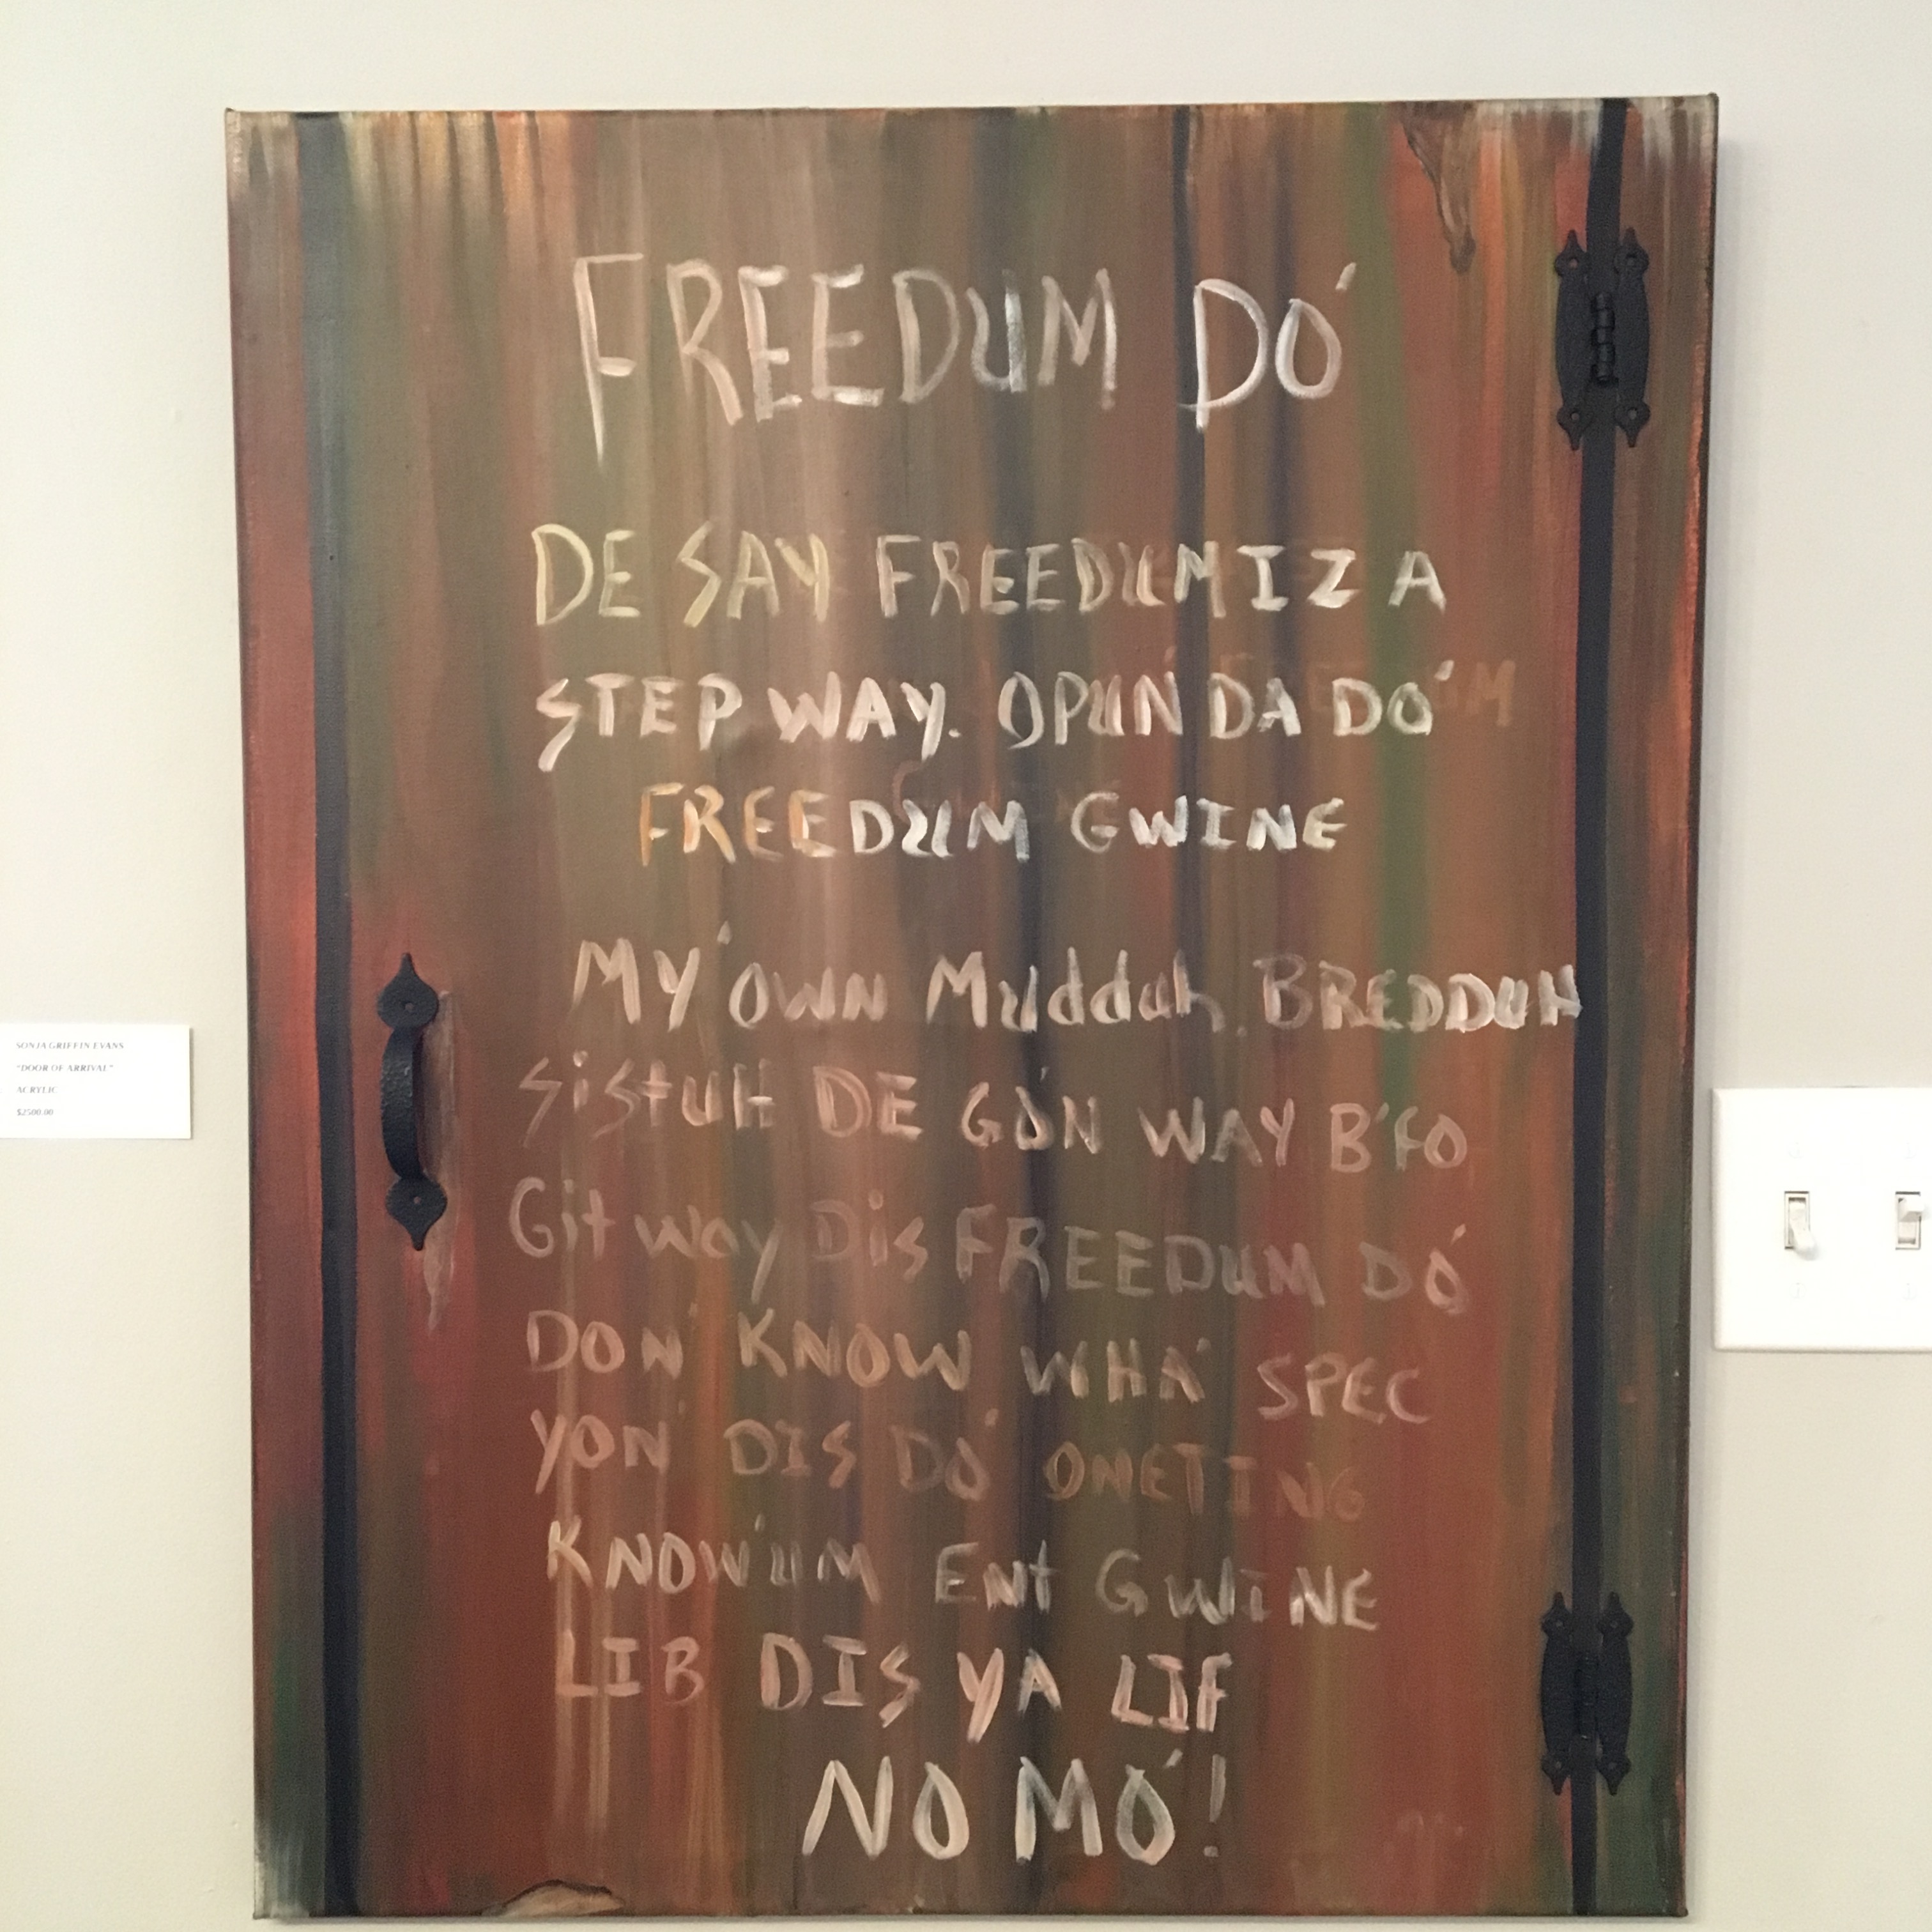 FREEDUM DO'
DE SAY FREEDUM IZ A
STEP WAY. OPUN DA DO'
FREEDUM GWINE
MY OWN Mudduh, BREDDUH
SiStUH DE GON WAY B'FO
Git way Dis FREEDUM DO'
DON' KNOW WHA' SPEC
YON' DIS DO' ONETING
KNOW'UM ENt GWINE
LIB DIS YA LIF
NO MO'!
SONJA GRIFFIN EVANS
"DOOR OF ARRIVAL"
ACRYLIC
$2500.00